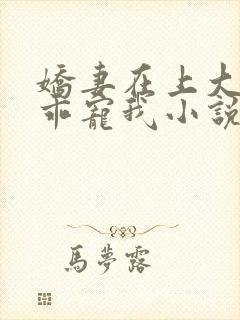 嬌妻在上大
乖寵我小說
馬夢露